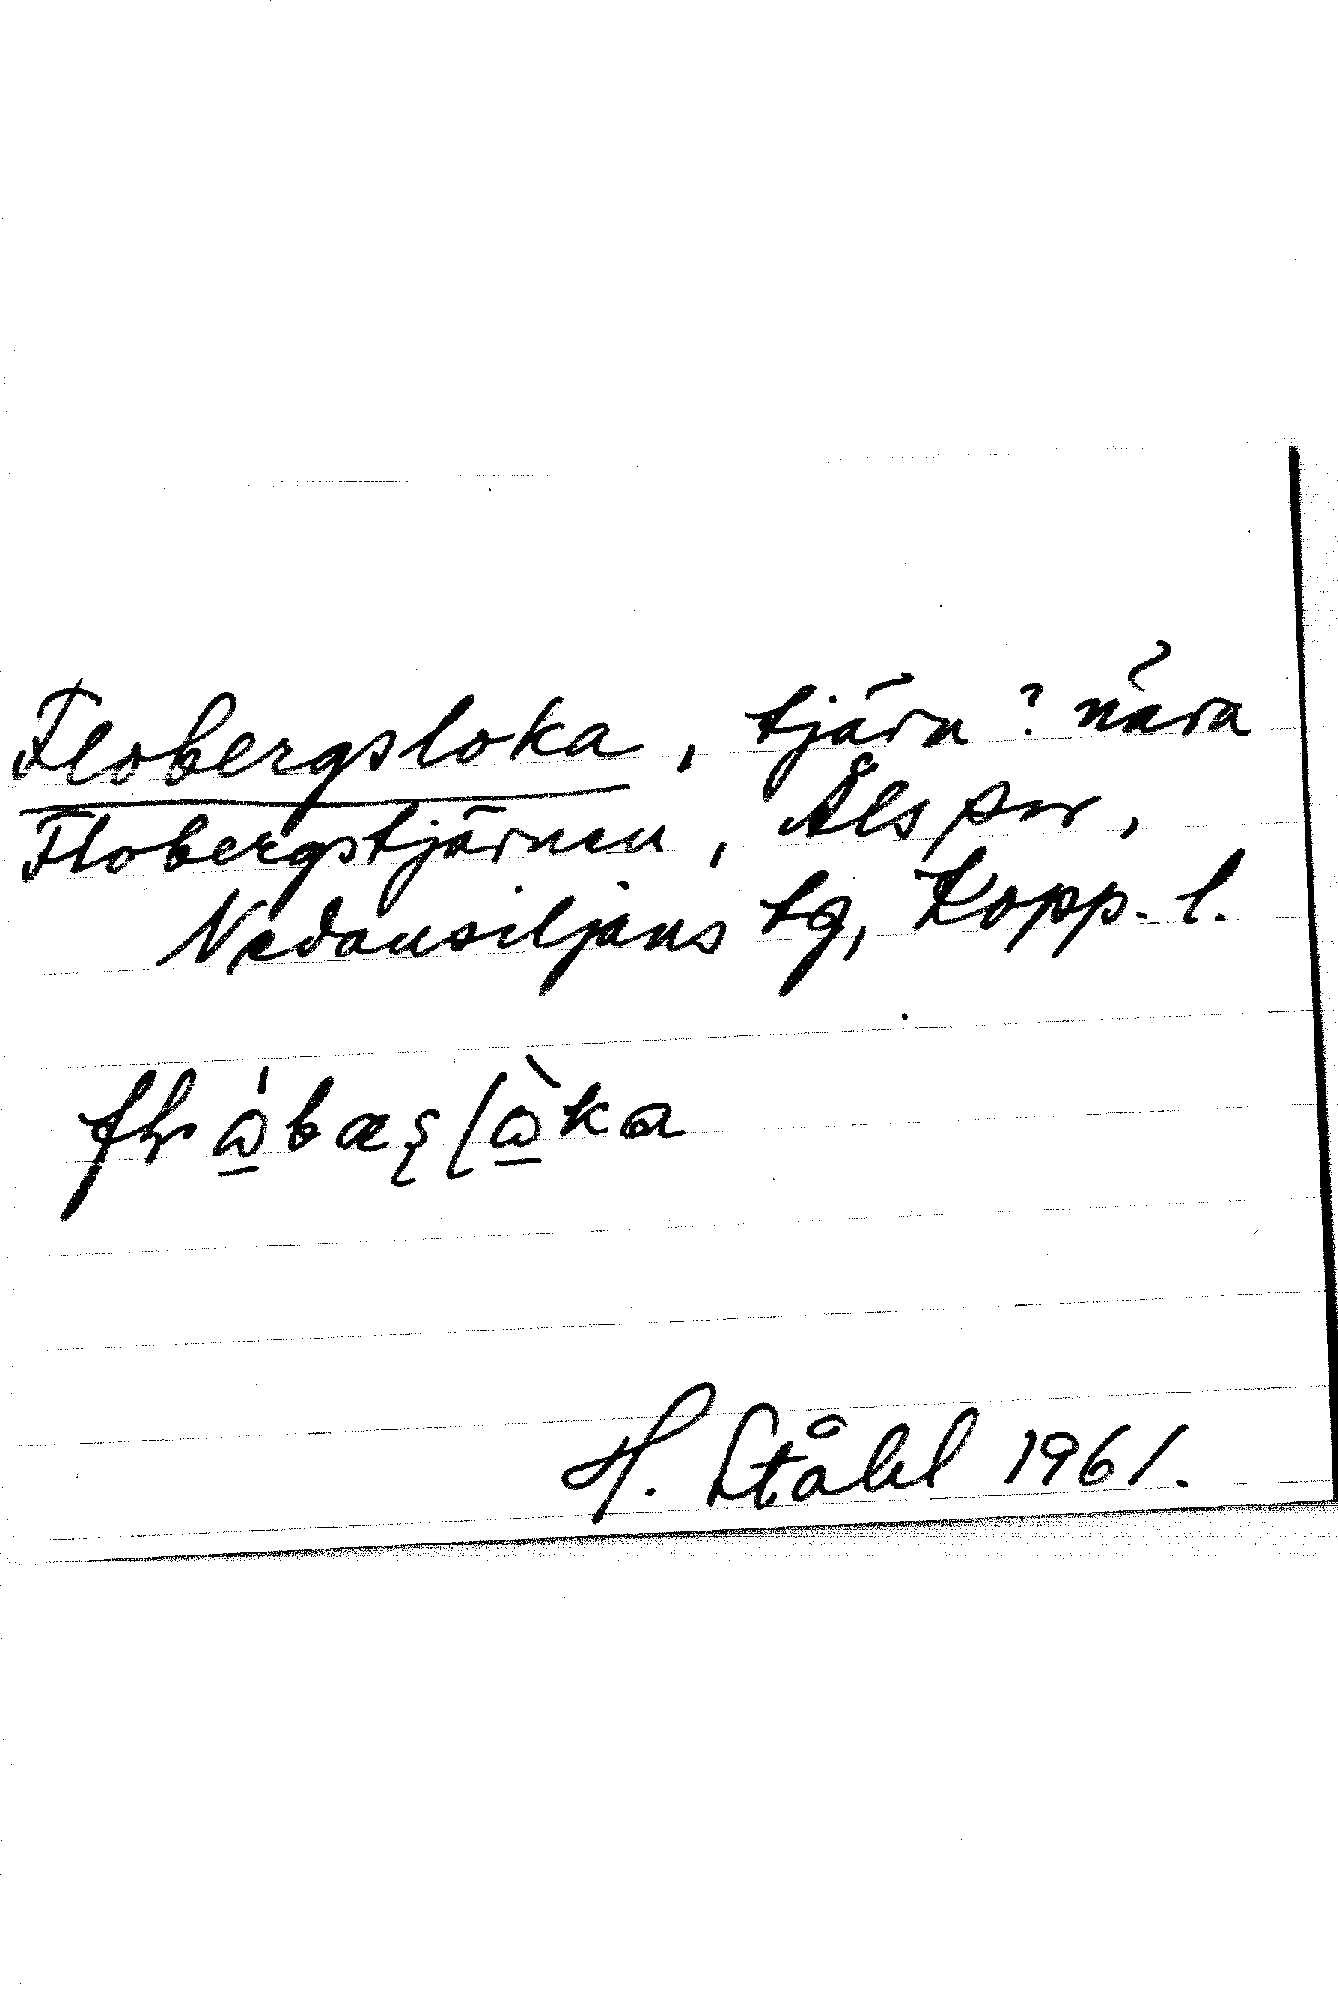 Flobergsloka, tjärn? nära
Flobergstjärnen, Åls sn,
Nedansiljans tg, Kopp. l.
H. Ståhl 1961.